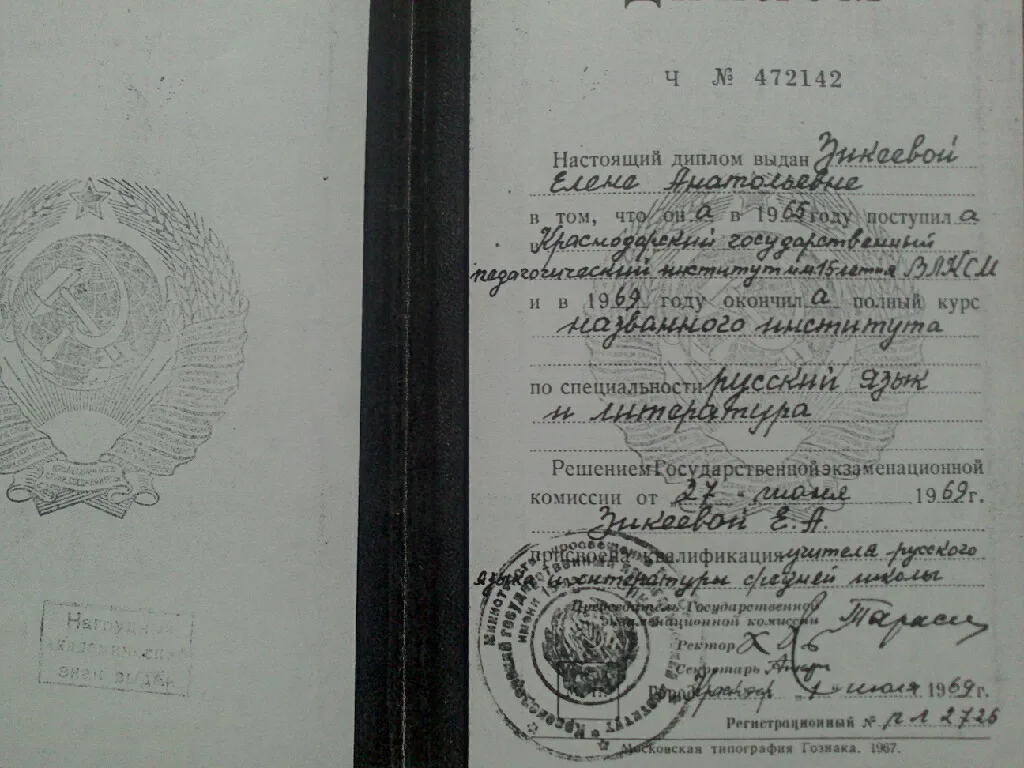 Ч № 472142
Настоящий диплом выдан Зикеевой
Елене Анатольевне
в том, что он а в 1965 году поступил а
в Краснодарский государственный
педагогический институт им 15-летия ВЛКСМ
и в 1969 году окончил а полный курс
названного института
по специальности русский язык
и литература
Решением Государственной экзаменационной
комиссии от 27 июня 1969 г.
Зикеевой Е. А.
присвоена квалификация учителя русского
языка и литературы средней школы
Председатель Государственной
экзаменационной комиссии
Ректор
Секретарь
Город Краснодар 1 июля 1969 г.
Регистрационный № пл 2726
Московская типография Гознака. 1967.
Нагрудный
академический
знак выдан